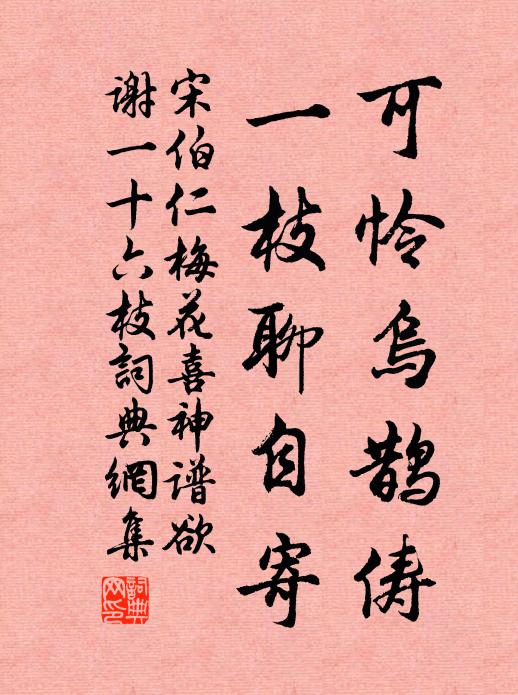 可怜乌鹊俦
一枝聊自寄
宋伯仁梅花喜神谱欲
谢一十六枝詞典網集
詞典網印